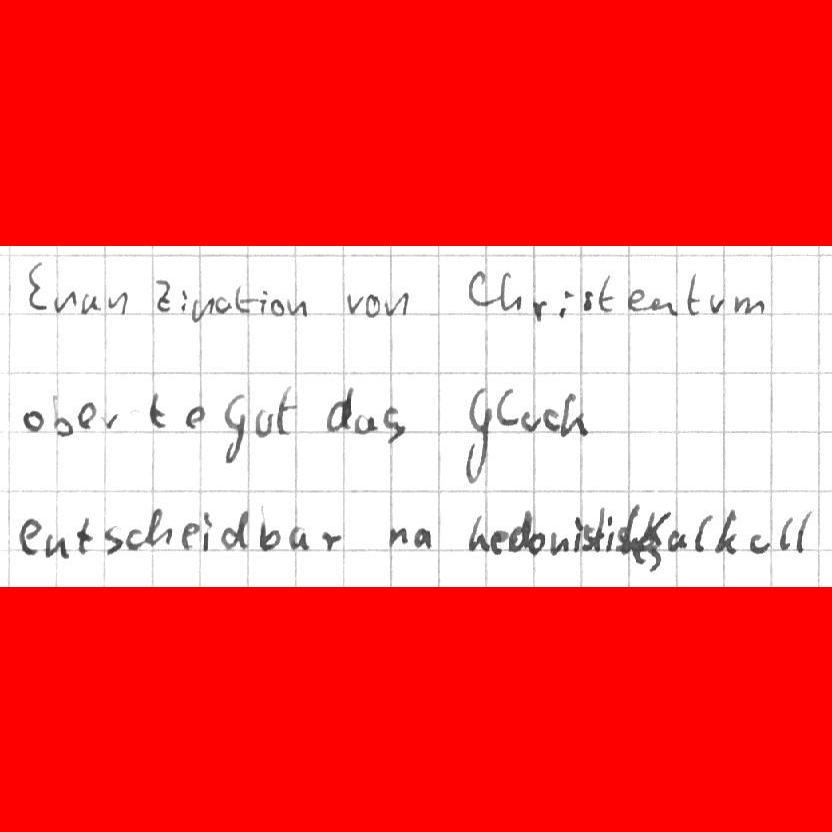 Enanzination von Christentum
oberte gut das gluck
entscheidbar na hedonistisches Kalkull